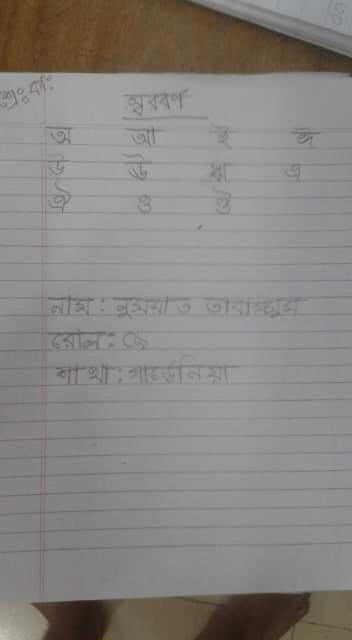 শ্রে: বা:
স্বরবর্ণ
অ আ ই ঈ
উ ঊ ঋ এ
ঐ ও ঔ
নাম : নুসরাত তাবাস্সুম
রোল : ০৯
শাখা : গার্ডেনিয়া